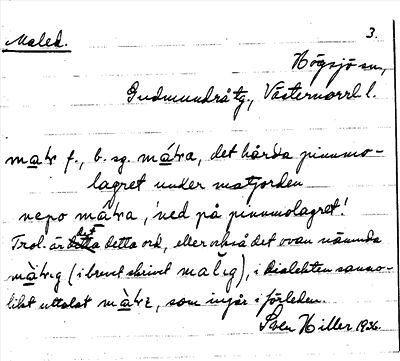 Maled. 3.
Högsjö sn,
Gudmundrå tg., Västernorrl l.
mar f., b. sg. mára, det hårda pinnmo-
lagret under matjorden
nepo mâra, 'ned på pinnmolagret'.
Trol. är det detta ord, eller också det ovan nämnda
(i brevet skrivet malig), i dialekten sanno-
likt uttalat, som ingår i förleden.
Sven Hiller 1936.